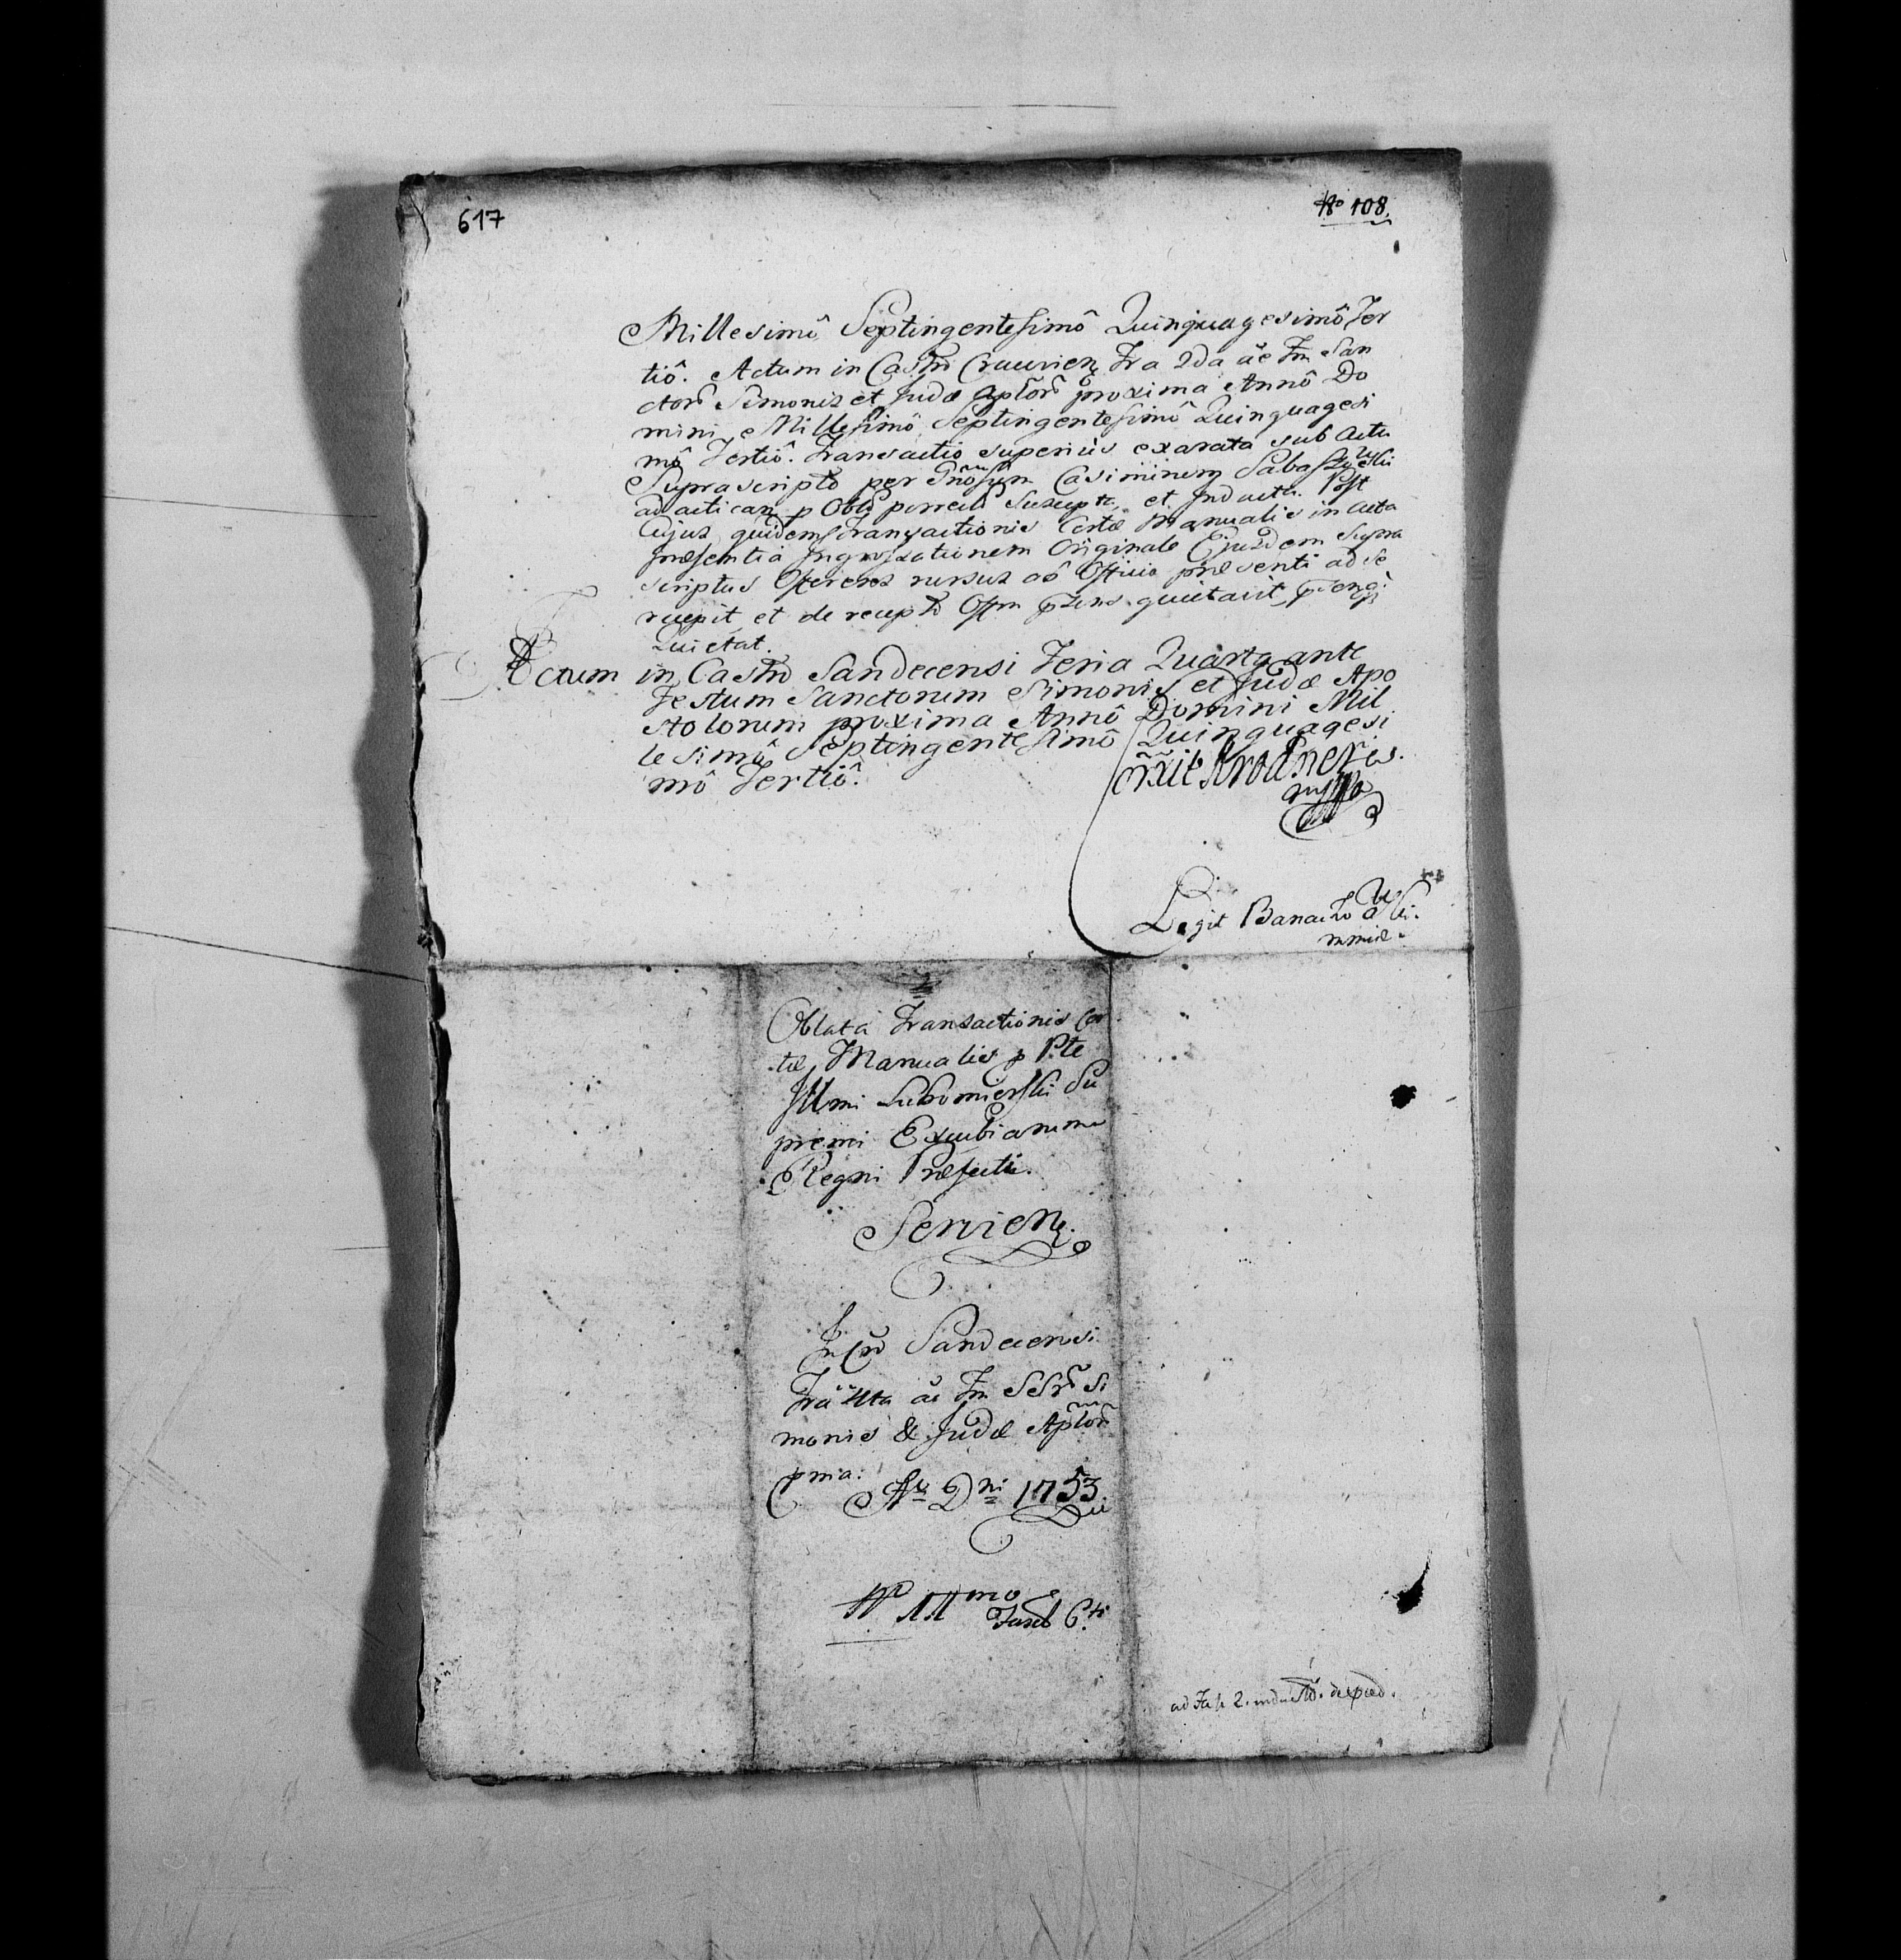 617
No 108.
Millesimô Septingentesimô Quinquagesimô Ter
tiô. Actum in Castro Cracovien Fra 2da ãe Fm San
ctorũ Simonis et Judæ Aplorũ proxima Annô Do
mini Millesimô Septingentesimô Quinquagesi
mô Tertiô. Transactio superius exarata sub actu
Suprascripto per Gnosum Casimirum
ad acticam p Obl porrecta Suscepta, et Inducta. Post
Cujus quidem Transactionis Cartæ Manualis in acta
præsentia Ingrossationem Originale Ejusdem supra
scriptus Offerens rursus ab Officio præsenti ad se
recepit et de recepto Offm pzens quietavit, pzenq
Quietat.
Actum in Castro Sandecensi Feria Quarta ante
Festum Sanctorum Simonis et Judæ Apo
stolorum proxima Annô Domini Mil
lesimô Septingentesimô Quinquagesi
mô Tertiô.
Legit
Oblata Transactionis Car
tæ Manualis p Pte
Illmi Lubomierski Su
premi Excubiarum
Regni Præfecti.
Servien.
In Cro Sandecensi
Fra 4ta ãe Fm SSrũ Si
monis & Judæ Aplorũ
pma.
Ao Dni 1753
No 11mo
Fasc 6ti
ad Fasc 2.